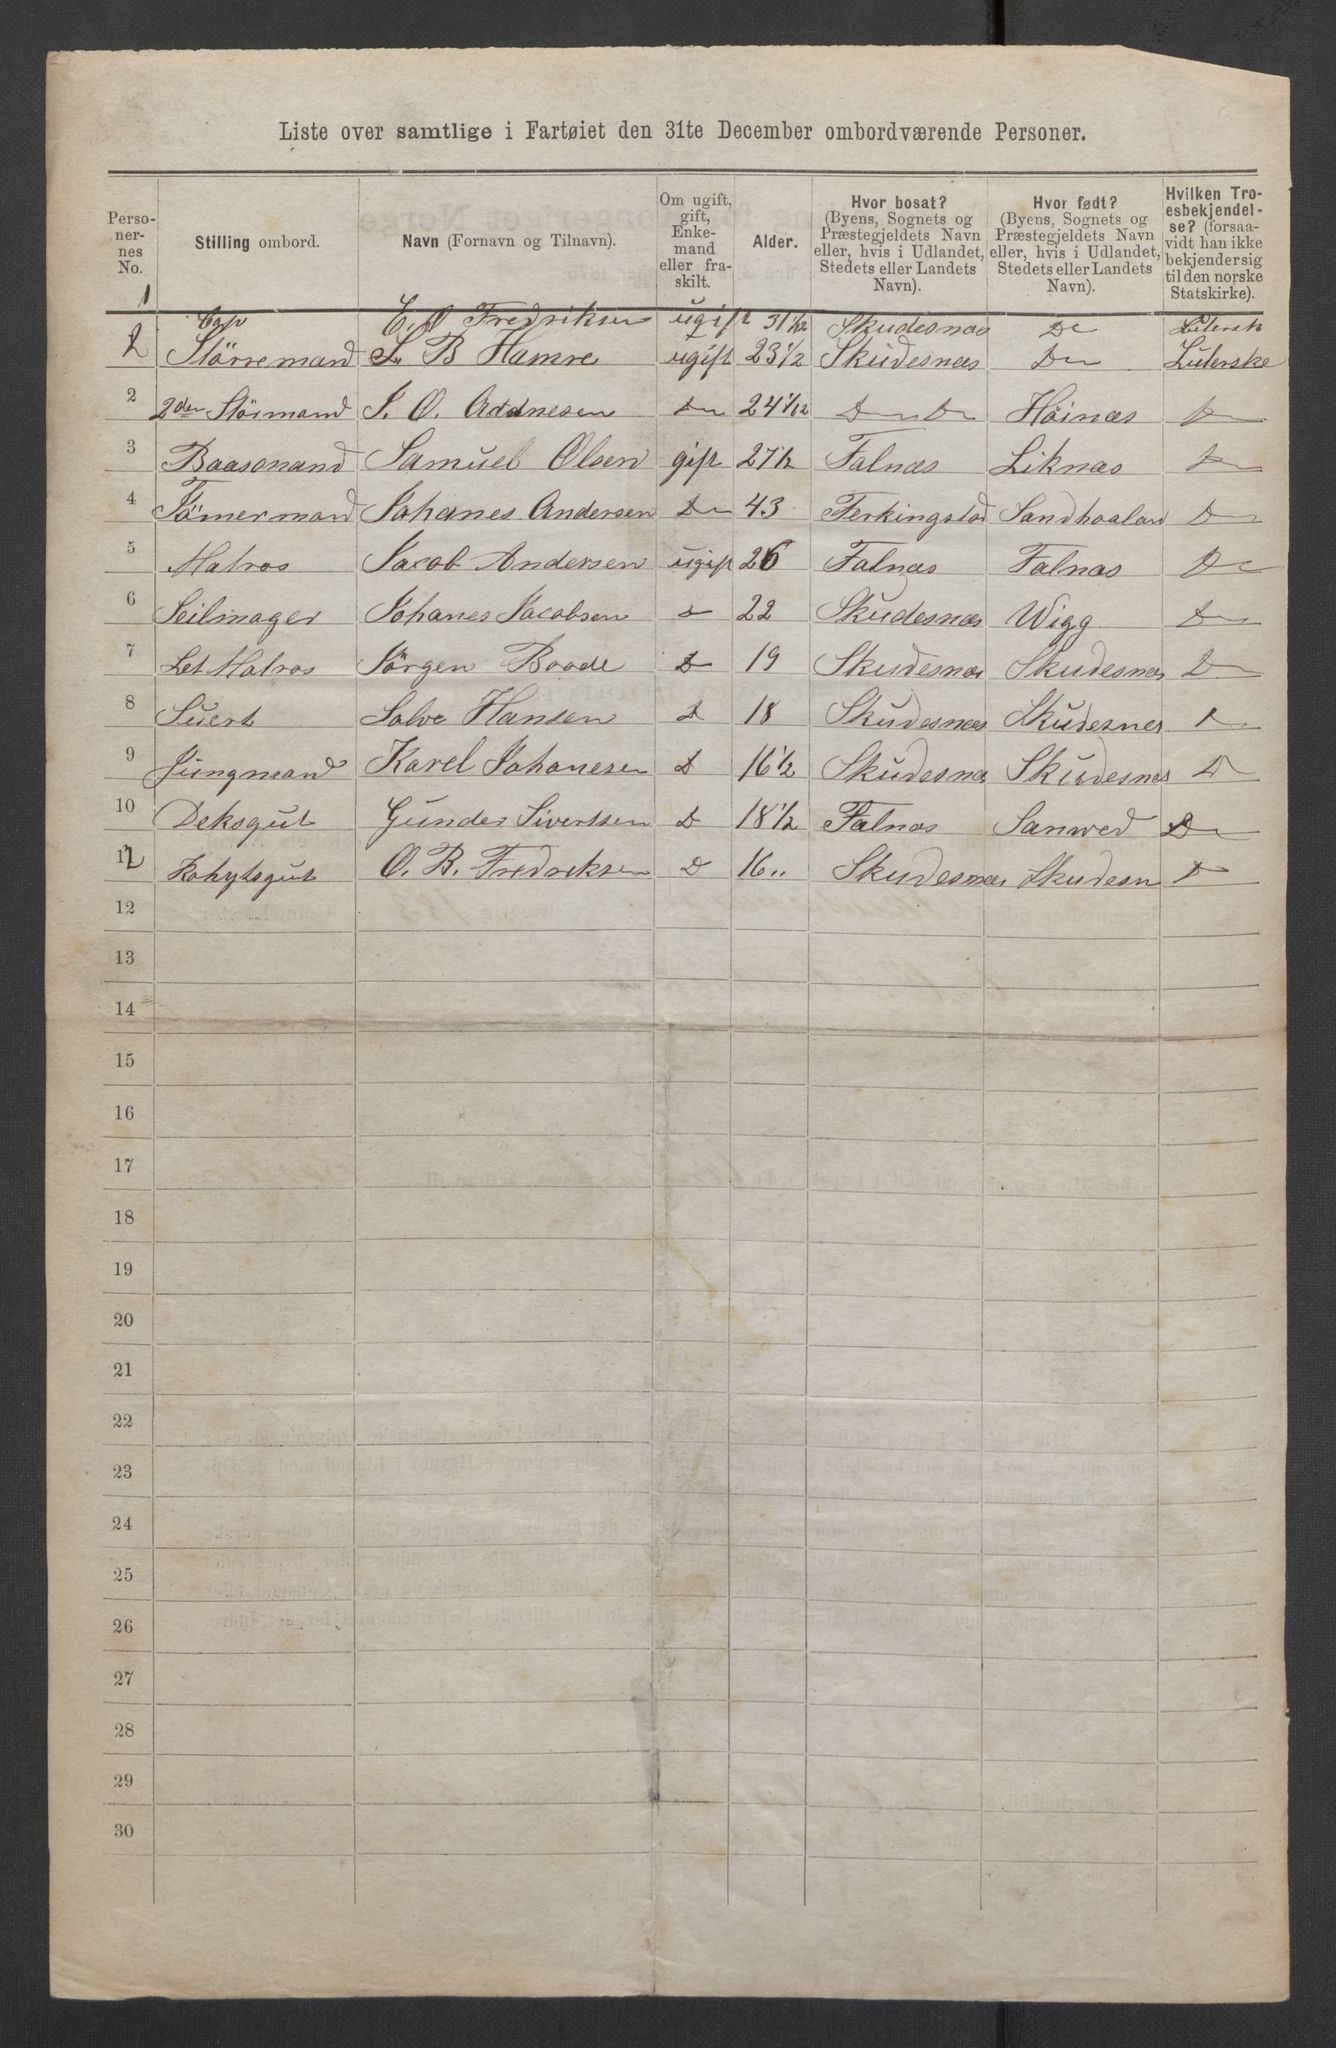 Liste over samtlige i Fartøiet den 31te December ombordværende Personer.
Personernes No. | Stilling ombord. | Navn (Fornavn og Tilnavn). | Om ugift, gift, Enkemand eller fraskilt. | Alder. | Hvor bosat? (Byens, Sognets og Præstegjeldets Navn eller, hvis i Udlandet, Stedets eller Landets Navn). | Hvor født? (Byens, Sognets og Præstegjeldets Navn eller, hvis i Udlandet, Stedets eller Landets Navn). | Hvilken Troesbekjendelse? (forsaavidt han ikke bekjender sig til den norske Statskirke).
1 Cap E. O Fredriksen ugift 31 1/12 Skudesnæs Do Litersk
2 Störremand L B Hamre ugift 23 1/2 Skudesnæs Do Luterske
2 2den Störmand J. O. Addnesen Do 24 1/12 Do Do Höinæs Do
3 Baasmand Samuel Olsen gift 27 1/2 Falnæs Liknæs Do
4 Tömermand Johanes Andersen Do 43 Ferkingstad Sandhaaland Do
5 Matros Jacob Andersen ugift 26 Falnæs Falnæs Do
6 Seilmager Johanes Jacobsen Do 22 Skudesnæs Wigg Do
7 Let Matros Jörgen Boode D 19 Skudesnæs Skudesnæs D
8 Suert Salve Hansen D 18 Skudesnæs Skudesnes D
9 Jungmand Karel Johanesen D 16 1/2 Skudesnæs Skudesnæs D
10 Deksgut Gunder Sivertsen D 18 1/2 Falnæs Sanwed Do
12 Kahytsgut O. B. Fredriksen D 16 ,, Skudesnæs Skudesn D
12
13
14
15
16
17
18
19
20
21
22
23
24
25
26
27
28
29
30